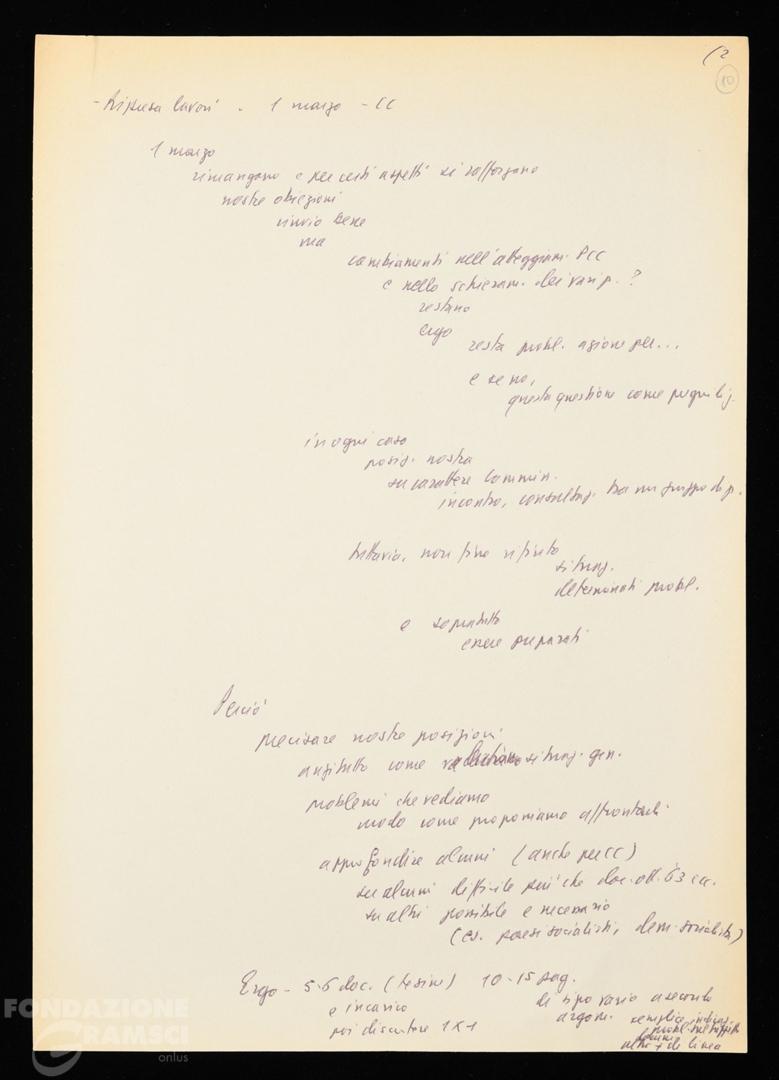 (2
10
- Ripresa lavori - 1 marzo - CC
1 marzo
rimangono e per certi aspetti si rafforzano
nostre obiezioni
rinvio bene
ma
cambiamenti nell'atteggiam. PCC
e nello schieram. dei vari p. ?
restano
ergo
resta probl. azione per...
e se no,
questa questione come
in ogni caso
posiz. nostra
su carattere
incontro, consultaz. tra un gruppo di p.
tuttavia, non puro rifiuto
situaz.
determinati probl.
e soprattutto
essere preparati
Perciò
precisare nostre posizioni
anzitutto come valutiamo situaz. gen.
problemi che vediamo
modo come proponiamo affrontarli
approfondire alcuni (anche per CC)
su alcuni difficile più che doc. ott. 63 cc.
su altri possibile e necessario
(es. paesi socialisti, dem. socialista)
Ergo - 5-6 doc. (tesine) 10-15 pag.
e incarico
di tipo vario a seconda
poi discutere 1 x 1
argom.
semplice
altri + di linea
FONDAZIONE
GRAMSCI
onlus